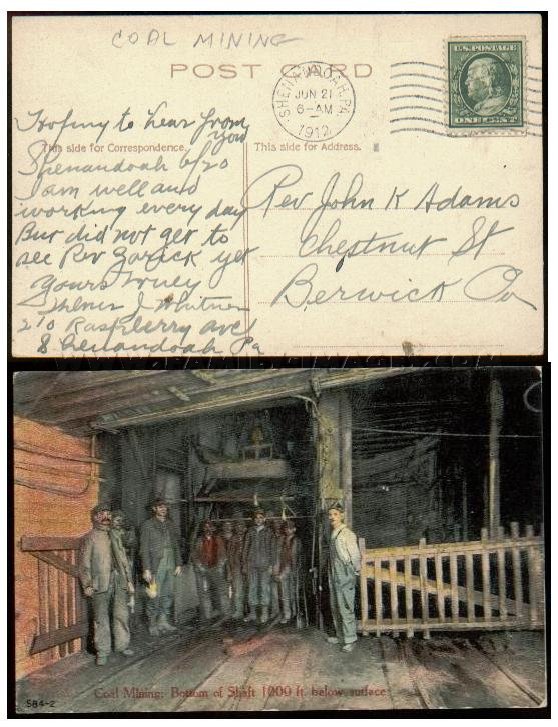 COAL MINING
POST CARD
U.S. POSTAGE
ONE CENT
SHENANDOAH, PA.
JUN 21
6-AM
1912
Hoping to hear from
you
This side for Correspondence.
This side for Address.
Shenandoah 6/20
I am well and
working every day
But did not get to
see Rev Zorick yet
Yours Truly
J. Whitner
210 Raspberry ave
Shenandoah Pa
Rev John K Adams
Chestnut St
Berwick Pa
Coal Mining: Bottom of Shaft 1000 ft. below surface
584-2